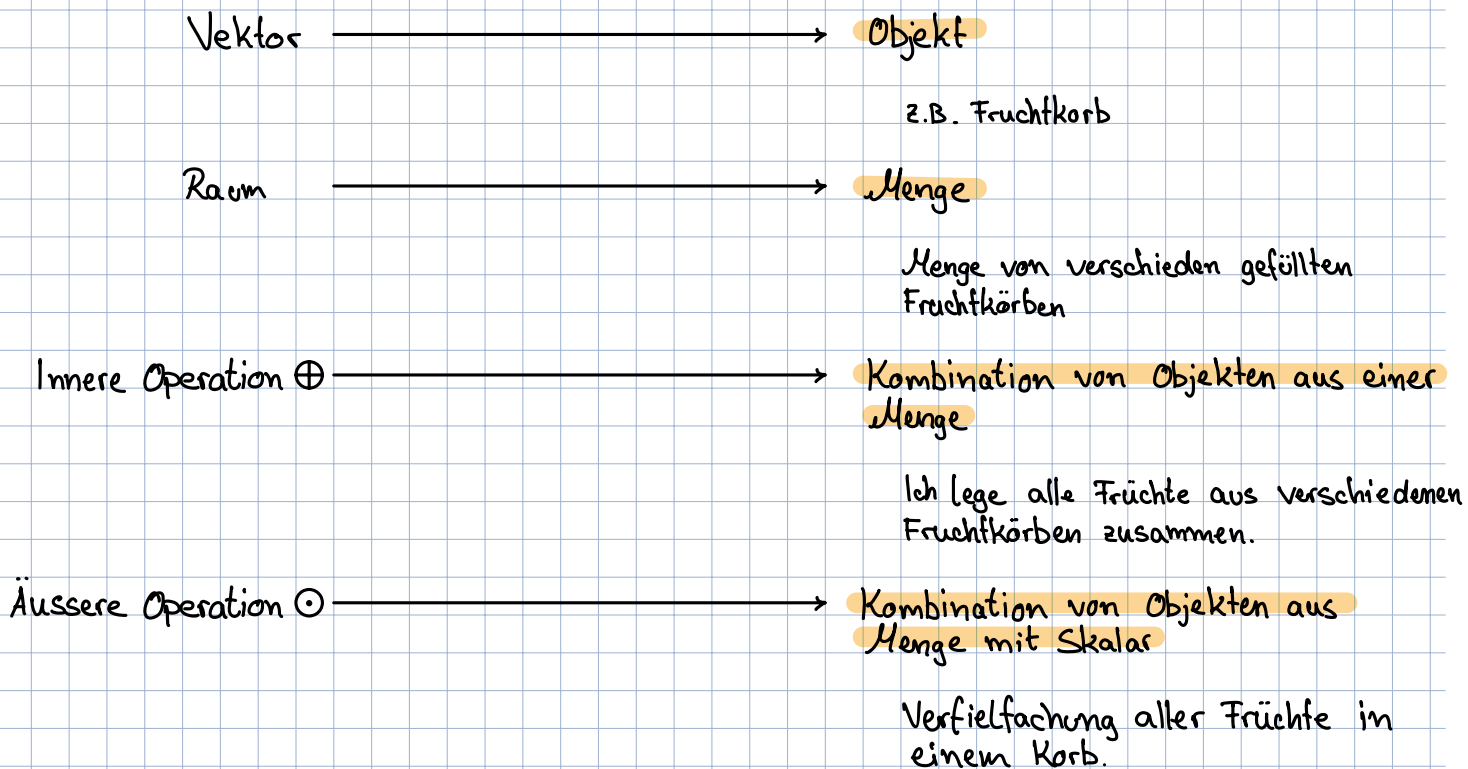 Vektor → Objekt
z.B. Fruchtkorb
Raum → Menge
Menge von verschieden gefüllten
Fruchtkörben
Innere Operation ⊕ → Kombination von Objekten aus einer
Menge
Ich lege alle Früchte aus verschiedenen
Fruchtkörben zusammen.
Äussere Operation ⊙ → Kombination von Objekten aus
Menge mit Skalar
Verfielfachung aller Früchte in
einem Korb.